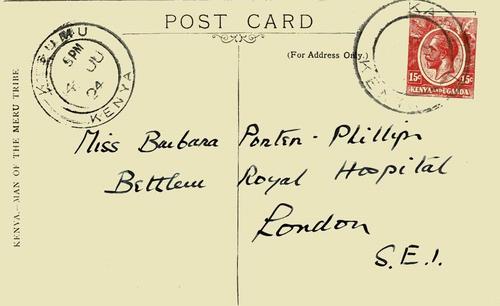 POST CARD
KISUMU
5 PM
4 JU
24
KENYA
(For Address Only.)
KENYA
15c 15c
KENYA AND UGANDA
KENYA.—MAN OF THE MERU TRIBE
Miss Barbara Porten-Phillips
Royal Hospital
London
S.E.1.